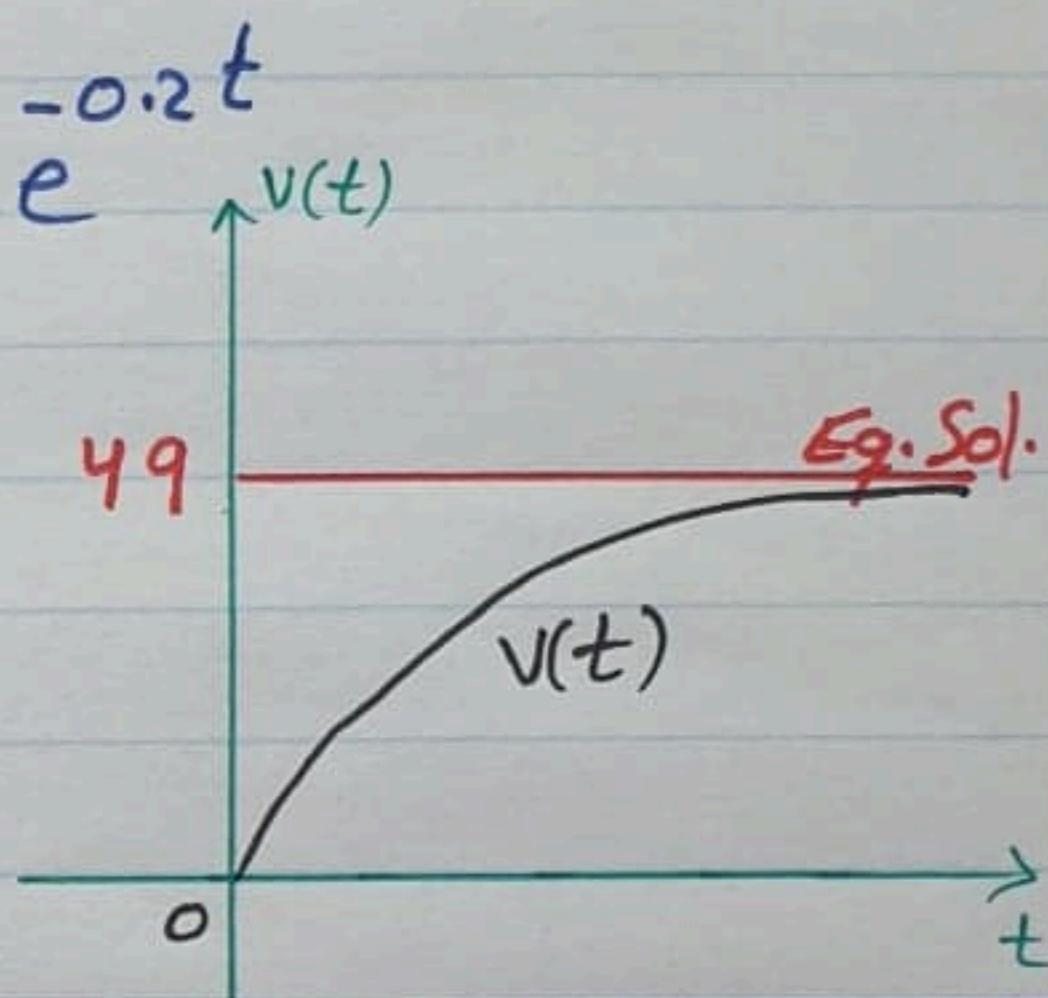 e^-0.2t
V(t)
49
Eq. Sol.
V(t)
0
t